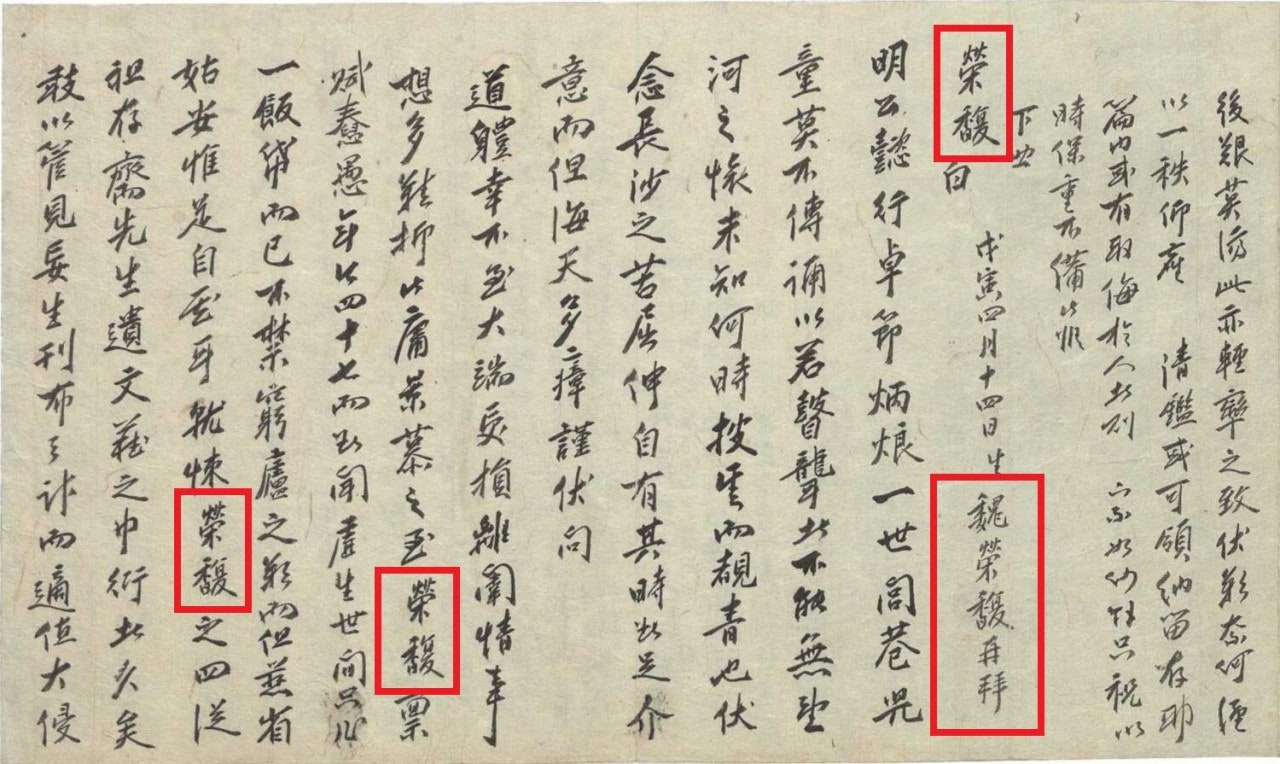 後艱莫濟此亦輕率之致伏歎奈何
以一秩仰塵 清鑑或可領納留存耶
篇內或有取侮於人此則 如何餘只祝以
時保重不備此惟
下照
戊寅四月十四日生魏榮馥再拜
榮馥白
明公懿行卓節炳烺一世閭巷兒
童莫不傳誦以若瞽聾者不能無望
河之懷未知何時披雲而覩青也伏
念長沙之苦屈伸自有其時足介
意而但海天多瘴謹伏問
道體幸不至大端受損離闈情事
想多難抑庸景慕之至榮馥稟
賦蠢愚年今四十七而無聞虛生世間只作
一飯帒而已不禁窮廬之歎而但慈省
姑安惟是自慰耳就悚榮馥之四從
祖存齋先生遺文藏之巾衍者久矣
敢以管見妄生刊布之計而適值大侵